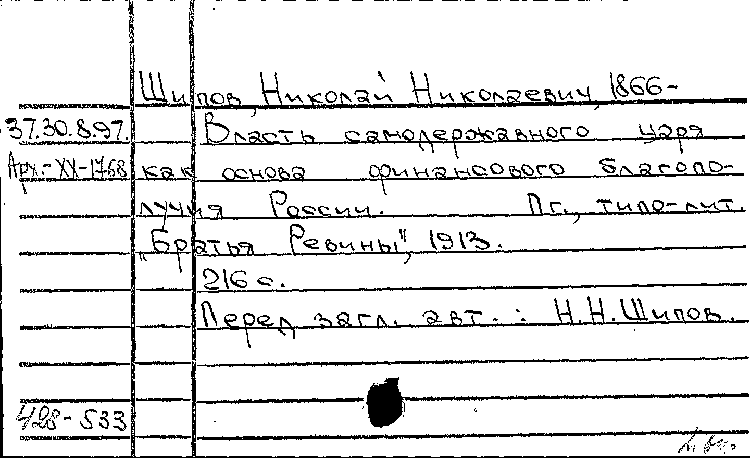 Шипов, Николай Николаевич, 1866-
37.30.8.97. Власть самодержавного царя
Арх.-XX-1768 как основа финансового благопо-
лучия России. Пг., типо-лит.
"Братья Ревины", 1913.
216 с.
Перед загл. авт.: Н.Н.Шипов.
428-533